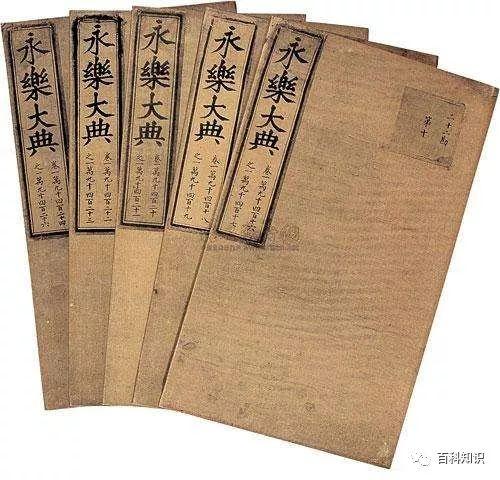 永樂大典
卷一萬九千四百二十四
之一萬九千四百二十六
永樂大典
卷一萬九千四百二十二
之一萬九千四百二十三
永樂大典
卷一萬九千四百二十
之一萬九千四百二十一
永樂大典
卷一萬九千四百十八
之一萬九千四百十九
永樂大典
卷一萬九千四百十六
之一萬九千四百十七
二十二勘
第十
百科知识